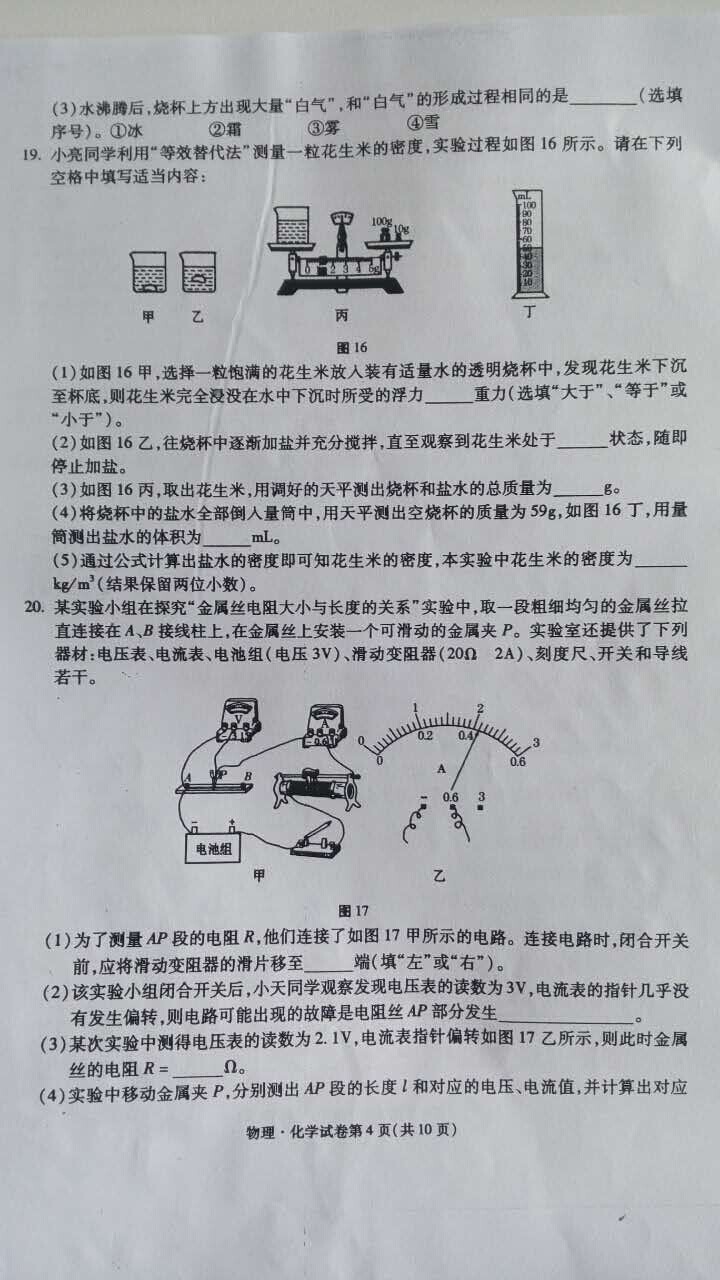 (3)水沸腾后,烧杯上方出现大量“白气”,和“白气”的形成过程相同的是______(选填
序号)。①冰 ②霜 ③雾 ④雪
19. 小亮同学利用“等效替代法”测量一粒花生米的密度,实验过程如图 16 所示。请在下列
空格中填写适当内容:
100g 10g
0 1 2 3 4 5g
mL
100
90
80
70
60
50
40
30
20
10
甲 乙 丙 丁
图 16
(1)如图 16 甲,选择一粒饱满的花生米放入装有适量水的透明烧杯中,发现花生米下沉
至杯底,则花生米完全浸没在水中下沉时所受的浮力_____重力(选填“大于”、“等于”或
“小于”)。
(2)如图 16 乙,往烧杯中逐渐加盐并充分搅拌,直至观察到花生米处于_____状态,随即
停止加盐。
(3)如图 16 丙,取出花生米,用调好的天平测出烧杯和盐水的总质量为_____g。
(4)将烧杯中的盐水全部倒入量筒中,用天平测出空烧杯的质量为 59g,如图 16 丁,用量
筒测出盐水的体积为_____mL。
(5)通过公式计算出盐水的密度即可知花生米的密度,本实验中花生米的密度为_____
kg/m³(结果保留两位小数)。
20. 某实验小组在探究“金属丝电阻大小与长度的关系”实验中,取一段粗细均匀的金属丝拉
直连接在 A、B 接线柱上,在金属丝上安装一个可滑动的金属夹 P。实验室还提供了下列
器材:电压表、电流表、电池组(电压 3V)、滑动变阻器(20Ω 2A)、刻度尺、开关和导线
若干。
V
A
A P B
- +
电池组
0 1 2 3
0 0.2 0.4 0.6
A
- 0.6 3
甲 乙
图 17
(1)为了测量 AP 段的电阻 R,他们连接了如图 17 甲所示的电路。连接电路时,闭合开关
前,应将滑动变阻器的滑片移至_____端(填“左”或“右”)。
(2)该实验小组闭合开关后,小天同学观察发现电压表的读数为 3V,电流表的指针几乎没
有发生偏转,则电路可能出现的故障是电阻丝 AP 部分发生______________。
(3)某次实验中测得电压表的读数为 2.1V,电流表指针偏转如图 17 乙所示,则此时金属
丝的电阻 R = _____Ω。
(4)实验中移动金属夹 P,分别测出 AP 段的长度 l 和对应的电压、电流值,并计算出对应
物理·化学试卷第 4 页(共 10 页)